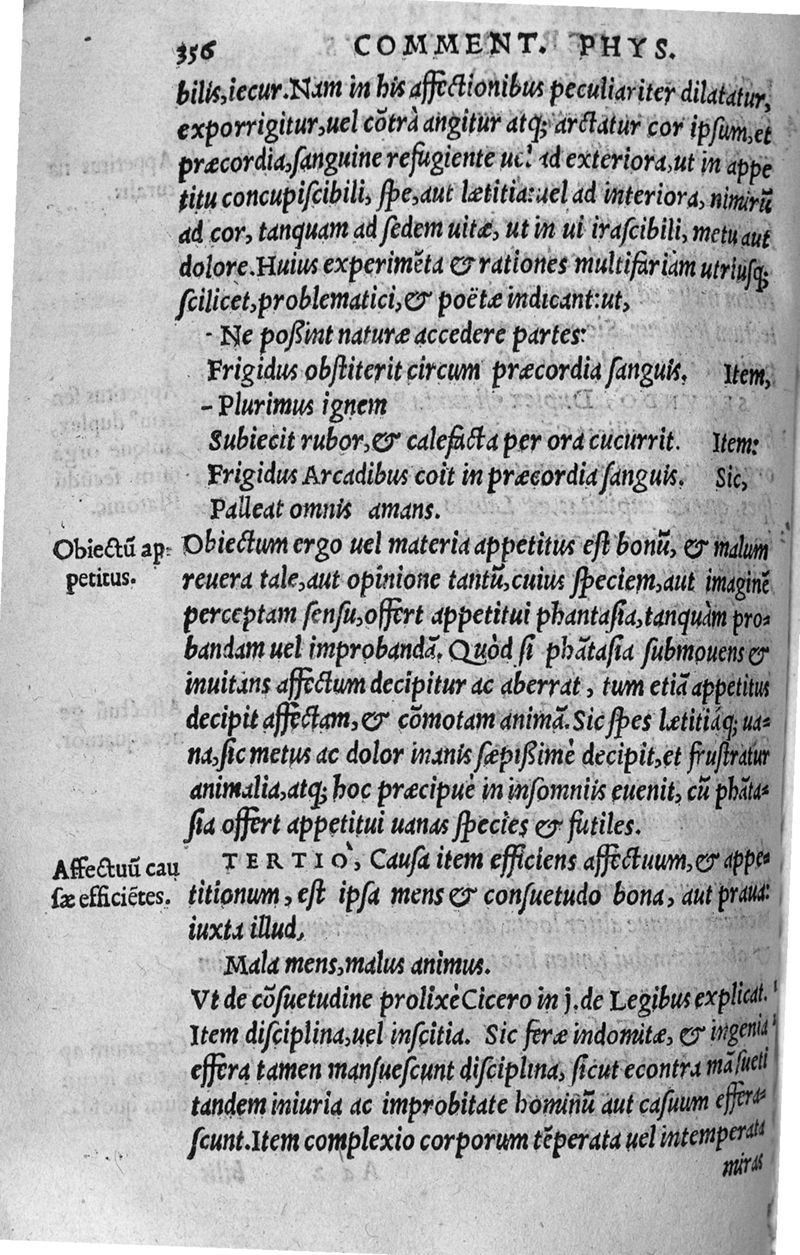 356 COMMENT. PHYS.
bilis, iecur. Nam in his affectionibus peculiariter dilatatur,
exporrigitur, uel cõtrà angitur atq; arctatur cor ipsum, et
præcordia, sanguine refugiente uel ad exteriora, ut in appe
titu concupiscibili, spe, aut lætitia: uel ad interiora, nimirũ
ad cor, tanquam ad sedem uitæ, ut in ui irascibili, metu aut
dolore. Huius experimẽta & rationes multifariàm utriusq;
scilicet, problematici, & poëtæ indicant: ut,
- Ne poßint naturæ accedere partes:
Frigidus obstiterit circum præcordia sanguis. Item,
- Plurimus ignem
Subiecit rubor, & calefacta per ora cucurrit. Item:
Frigidus Arcadibus coit in præcordia sanguis. Sic,
Palleat omnis amans.
Obiectũ ap-
petitus.
Obiectum ergo uel materia appetitus est bonũ, & malum
reuera tale, aut opinione tantũ, cuius speciem, aut imaginẽ
perceptam sensu, offert appetitui phantasia, tanquàm pro-
bandam uel improbandã. Quòd si phãtasia submouens &
inuitans affectum decipitur ac aberrat, tum etiã appetitus
decipit affectam, & cõmotam animã. Sic spes lætitiáq; ua-
na, sic metus ac dolor inanis sæpißimè decipit, et frustratur
animalia, atq; hoc præcipuè in insomniis euenit, cũ phãta-
sia offert appetitui uanas species & futiles.
Affectuũ cau
sæ efficiẽtes.
TERTIÒ, Causa item efficiens affectuum, & appe-
titionum, est ipsa mens & consuetudo bona, aut praua:
iuxta illud,
Mala mens, malus animus.
Vt de cõsuetudine prolixè Cicero in j. de Legibus explicat.
Item disciplina, uel inscitia. Sic feræ indomitæ, & ingenia
effera tamen mansuescunt disciplina, sicut econtra mãsueti
tandem iniuria ac improbitate hominũ aut casuum effera-
scunt. Item complexio corporum tẽperata uel intemperata
miras